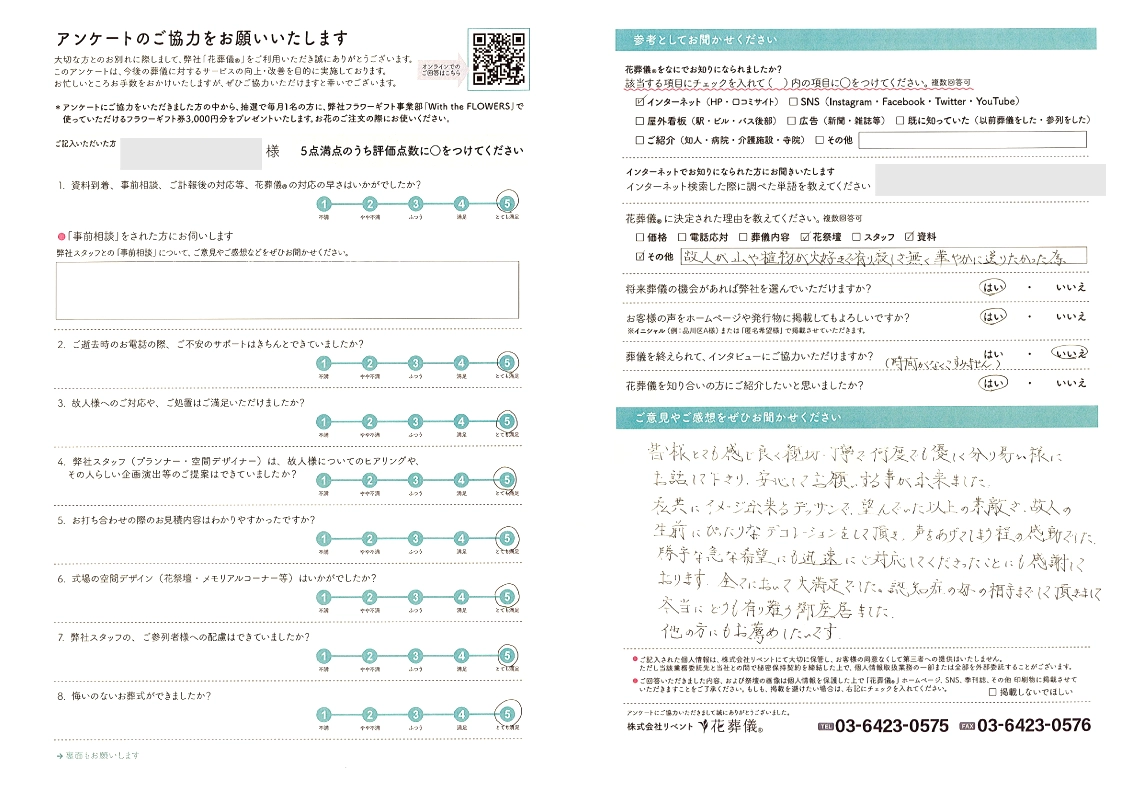 アンケートのご協力をお願いいたします
大切な方とのお別れに際しまして、弊社「花葬儀®」をご利用いただき誠にありがとうございます。
このアンケートは、今後の葬儀に対するサービスの向上・改善を目的に実施しております。
お忙しいところお手数をおかけいたしますが、ぜひご協力いただけますと幸いでございます。
オンラインでの
ご回答はこちら
* アンケートにご協力をいただきました方の中から、抽選で毎月1名の方に、弊社フラワーギフト事業部「With the FLOWERS」で
使っていただけるフラワーギフト券3,000円分をプレゼントいたします。お花のご注文の際にお使いください。
ご記入いただいた方 様 5点満点のうち評価点数に○をつけてください
1. 資料到着、事前相談、ご計報後の対応等、花葬儀®の対応の早さはいかがでしたか?
1 2 3 4 5
不満 やや不満 ふつう 満足 とても満足
●「事前相談」をされた方にお伺いします
弊社スタッフとの「事前相談」について、ご意見やご感想などをぜひお聞かせください。
2. ご逝去時のお電話の際、ご不安のサポートはきちんとできていましたか?
1 2 3 4 5
不満 やや不満 ふつう 満足 とても満足
3. 故人様へのご対応や、ご処置はご満足いただけましたか?
1 2 3 4 5
不満 やや不満 ふつう 満足 とても満足
4. 弊社スタッフ(プランナー・空間デザイナー)は、故人様についてのヒアリングや、
その人らしい企画演出等のご提案はできていましたか?
1 2 3 4 5
不満 やや不満 ふつう 満足 とても満足
5. お打ち合わせの際のお見積内容はわかりやすかったですか?
1 2 3 4 5
不満 やや不満 ふつう 満足 とても満足
6. 式場の空間デザイン(花祭壇・メモリアルコーナー等)はいかがでしたか?
1 2 3 4 5
不満 やや不満 ふつう 満足 とても満足
7. 弊社スタッフの、ご参列者様への配慮はできていましたか?
1 2 3 4 5
不満 やや不満 ふつう 満足 とても満足
8. 悔いのないお葬式ができましたか?
1 2 3 4 5
不満 やや不満 ふつう 満足 とても満足
→ 裏面もお願いします
参考としてお聞かせください
花葬儀®をなにでお知りになられましたか?
該当する項目にチェックを入れて( )内の項目に○をつけてください。複数回答可
☑ インターネット(HP・口コミサイト) □ SNS(Instagram・Facebook・Twitter・YouTube)
□ 屋外看板(駅・ビル・バス後部) □ 広告(新聞・雑誌等) □ 既に知っていた(以前葬儀をした・参列をした)
□ ご紹介(知人・病院・介護施設・寺院) □ その他
インターネットでお知りになられた方にお聞きいたします
インターネット検索した際に調べた単語を教えてください
花葬儀®に決定された理由を教えてください。複数回答可
□ 価格 □ 電話応対 □ 葬儀内容 ☑ 花祭壇 □ スタッフ ☑ 資料
☑ その他 故人が山や植物が大好きで有り寂しさ無く華やかに送りたかった為
将来葬儀の機会があれば弊社を選んでいただけますか? はい ・ いいえ
お客様の声をホームページや発行物に掲載してもよろしいですか? はい ・ いいえ
※イニシャル(例:品川区A様)または「匿名希望様」で掲載させていただきます。
葬儀を終えられて、インタビューにご協力いただけますか? はい ・ いいえ
(時間がなくてすみません)
花葬儀を知り合いの方にご紹介したいと思いましたか? はい ・ いいえ
ご意見やご感想をぜひお聞かせください
皆様とても感じ良く親切・丁寧で何度でも優しく分り易い様に
お話して下さり、安心してお願いする事が出来ました。
私共にイメージ出来るデッサンで、望んでいた以上の素敵さ、故人の
生前にぴったりなデコレーションをして頂き、声をあげてしまう程の感動でした。
勝手な急な希望にも迅速にご対応してくださったことにも感謝して
おります。全てにおいて大満足でした。認知症の母の相手までして頂きまして
本当にどうも有り難う御座居ました。
他の方にもお薦めしたいです。
● ご記入された個人情報は、株式会社リベントにて大切に保管し、お客様の同意なくして第三者への提供はいたしません。
ただし当該業務委託先と当社との間で秘密保持契約を締結した上で、個人情報取扱業務の一部または全部を外部委託することがございます。
● ご回答いただきました内容、および祭壇の画像は個人情報を保護した上で「花葬儀®」ホームページ、SNS、季刊誌、その他 印刷物に掲載させて
いただきますことをご了承ください。もしも、掲載を避けたい場合は、右記にチェックを入れてください。 □ 掲載しないでほしい
アンケートにご協力いただきまして誠にありがとうございました。
株式会社リベント 花葬儀® TEL 03-6423-0575 FAX 03-6423-0576